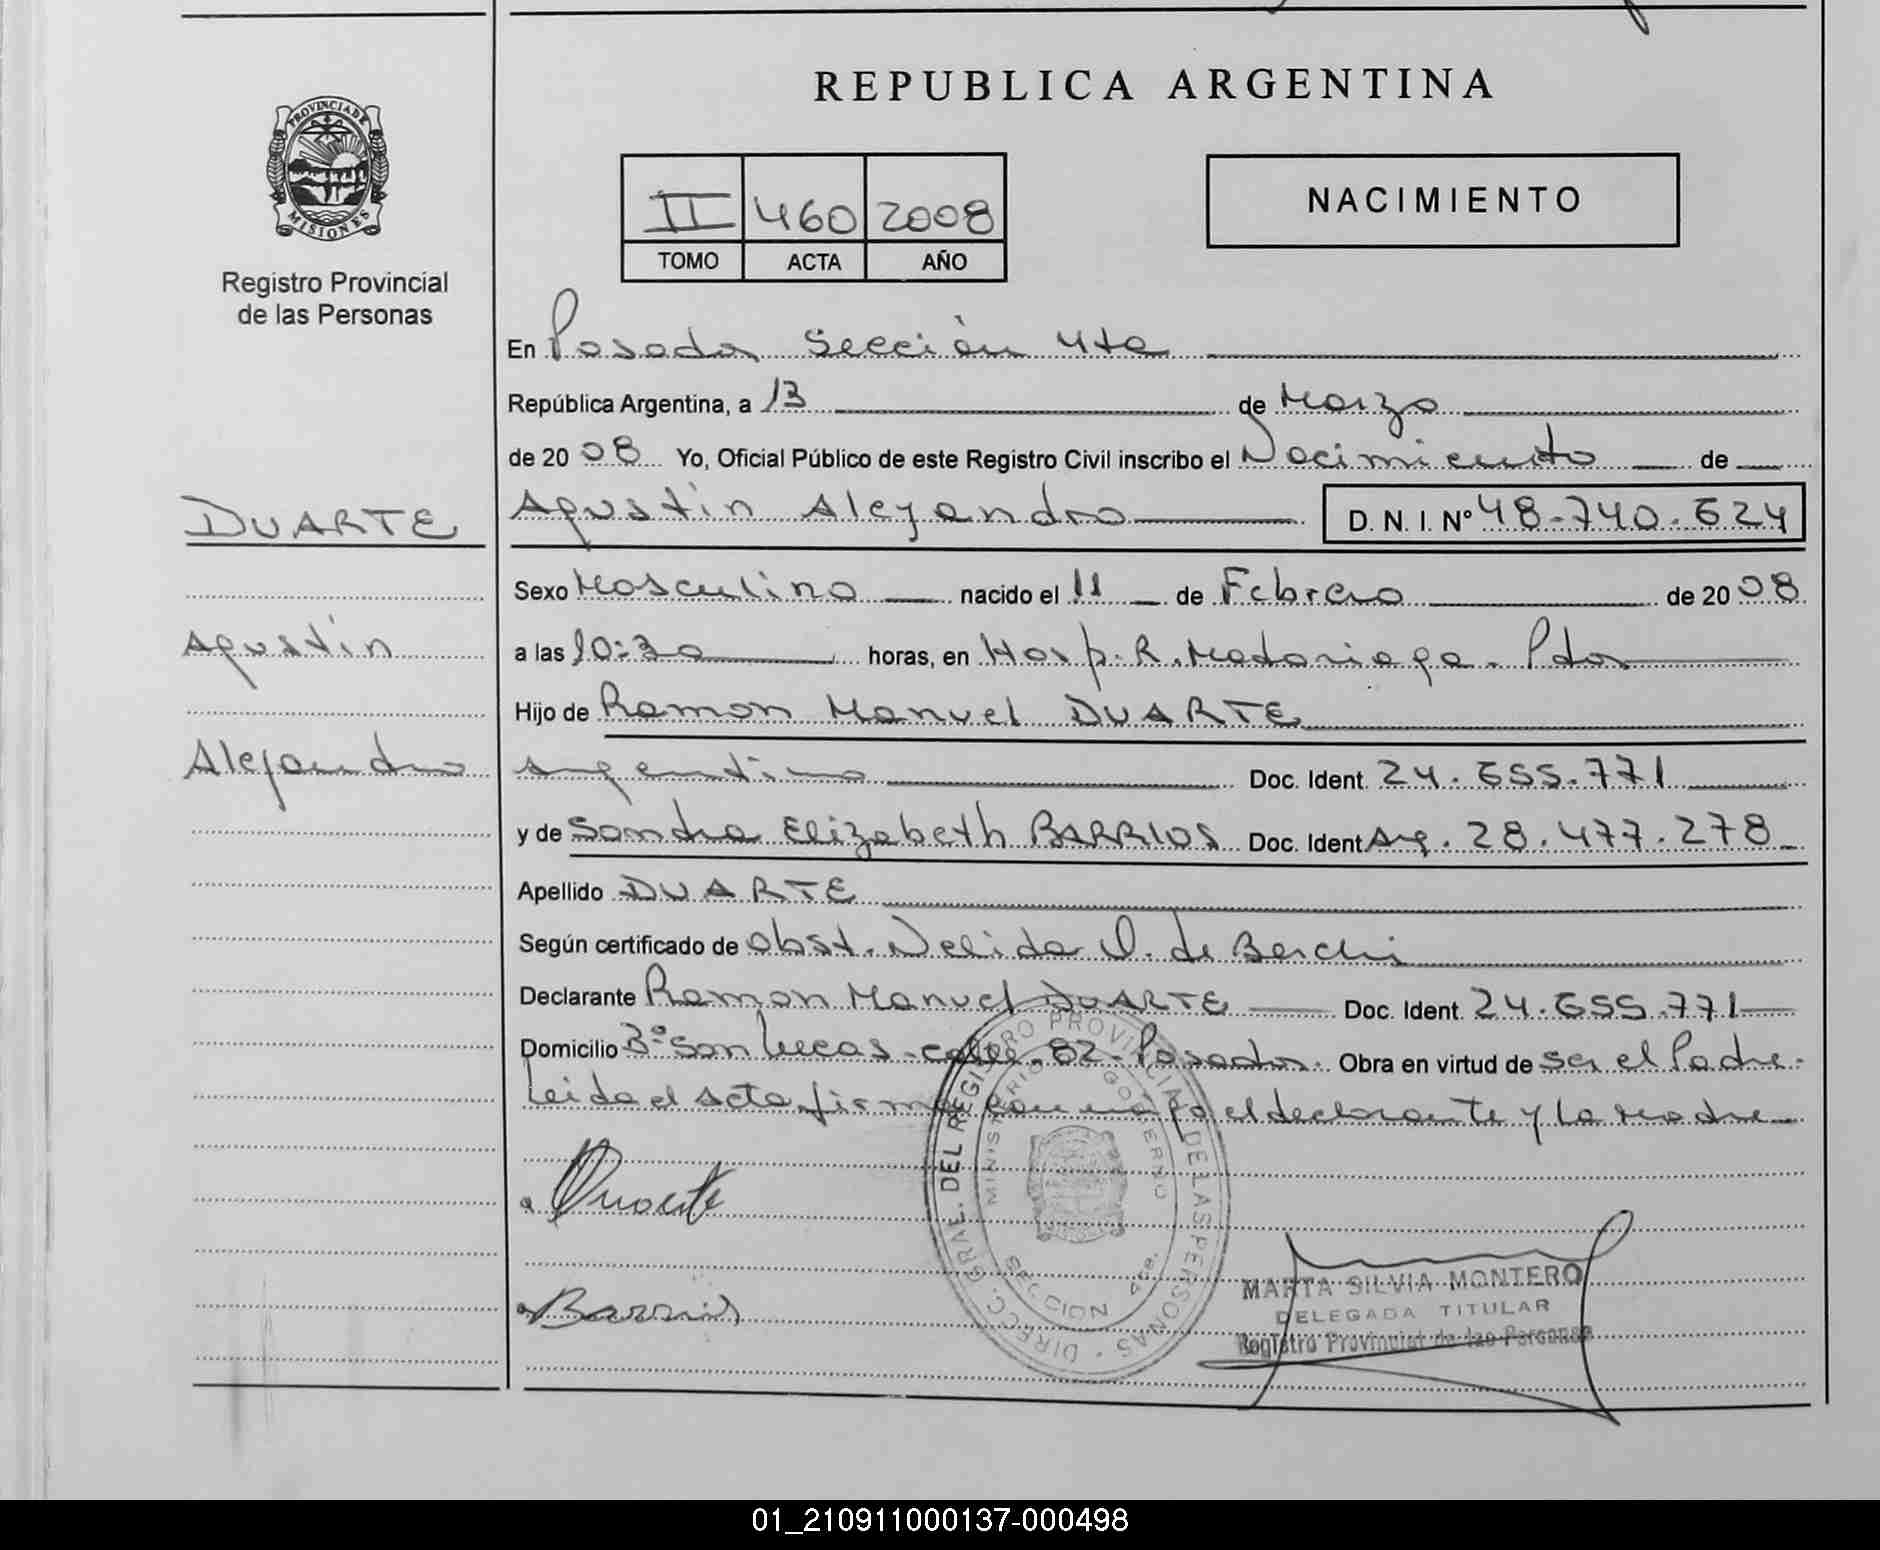 REPUBLICA ARGENTINA
PROVINCIA DE
MISIONES
Registro Provincial
de las Personas
II 460 2008
TOMO ACTA AÑO
NACIMIENTO
En Posadas Sección 4ta
República Argentina, a 13 de Marzo
de 2008 Yo, Oficial Público de este Registro Civil inscribo el Nacimiento de
DUARTE
Agustín Alejandro D. N. I. Nº 48.740.624
Sexo Masculino nacido el 11 de Febrero de 2008
Agustín
a las 10:30 horas, en Hosp. R. Madariaga. Pdas
Hijo de Ramon Manuel DUARTE
Alejandro
argentino Doc. Ident. 24.655.771
y de Sandra Elizabeth BARRIOS Doc. Ident Arg. 28.477.278
Apellido DUARTE
Según certificado de Obst. Nelida D. de Berchi
Declarante Ramon Manuel DUARTE Doc. Ident. 24.655.771
Domicilio Bº San Lucas - calle 82 - Posadas. Obra en virtud de ser el Padre.
Leida el acta firma con migo el declarante y la madre
Duarte
Barrios
DIRECC. GRAL. DEL REGISTRO PROVINCIAL DE LAS PERSONAS
MINISTERIO GOBIERNO
SECCION 4ta.
MARTA SILVIA MONTERO
DELEGADA TITULAR
Registro Provincial de las Personas
01_210911000137-000498